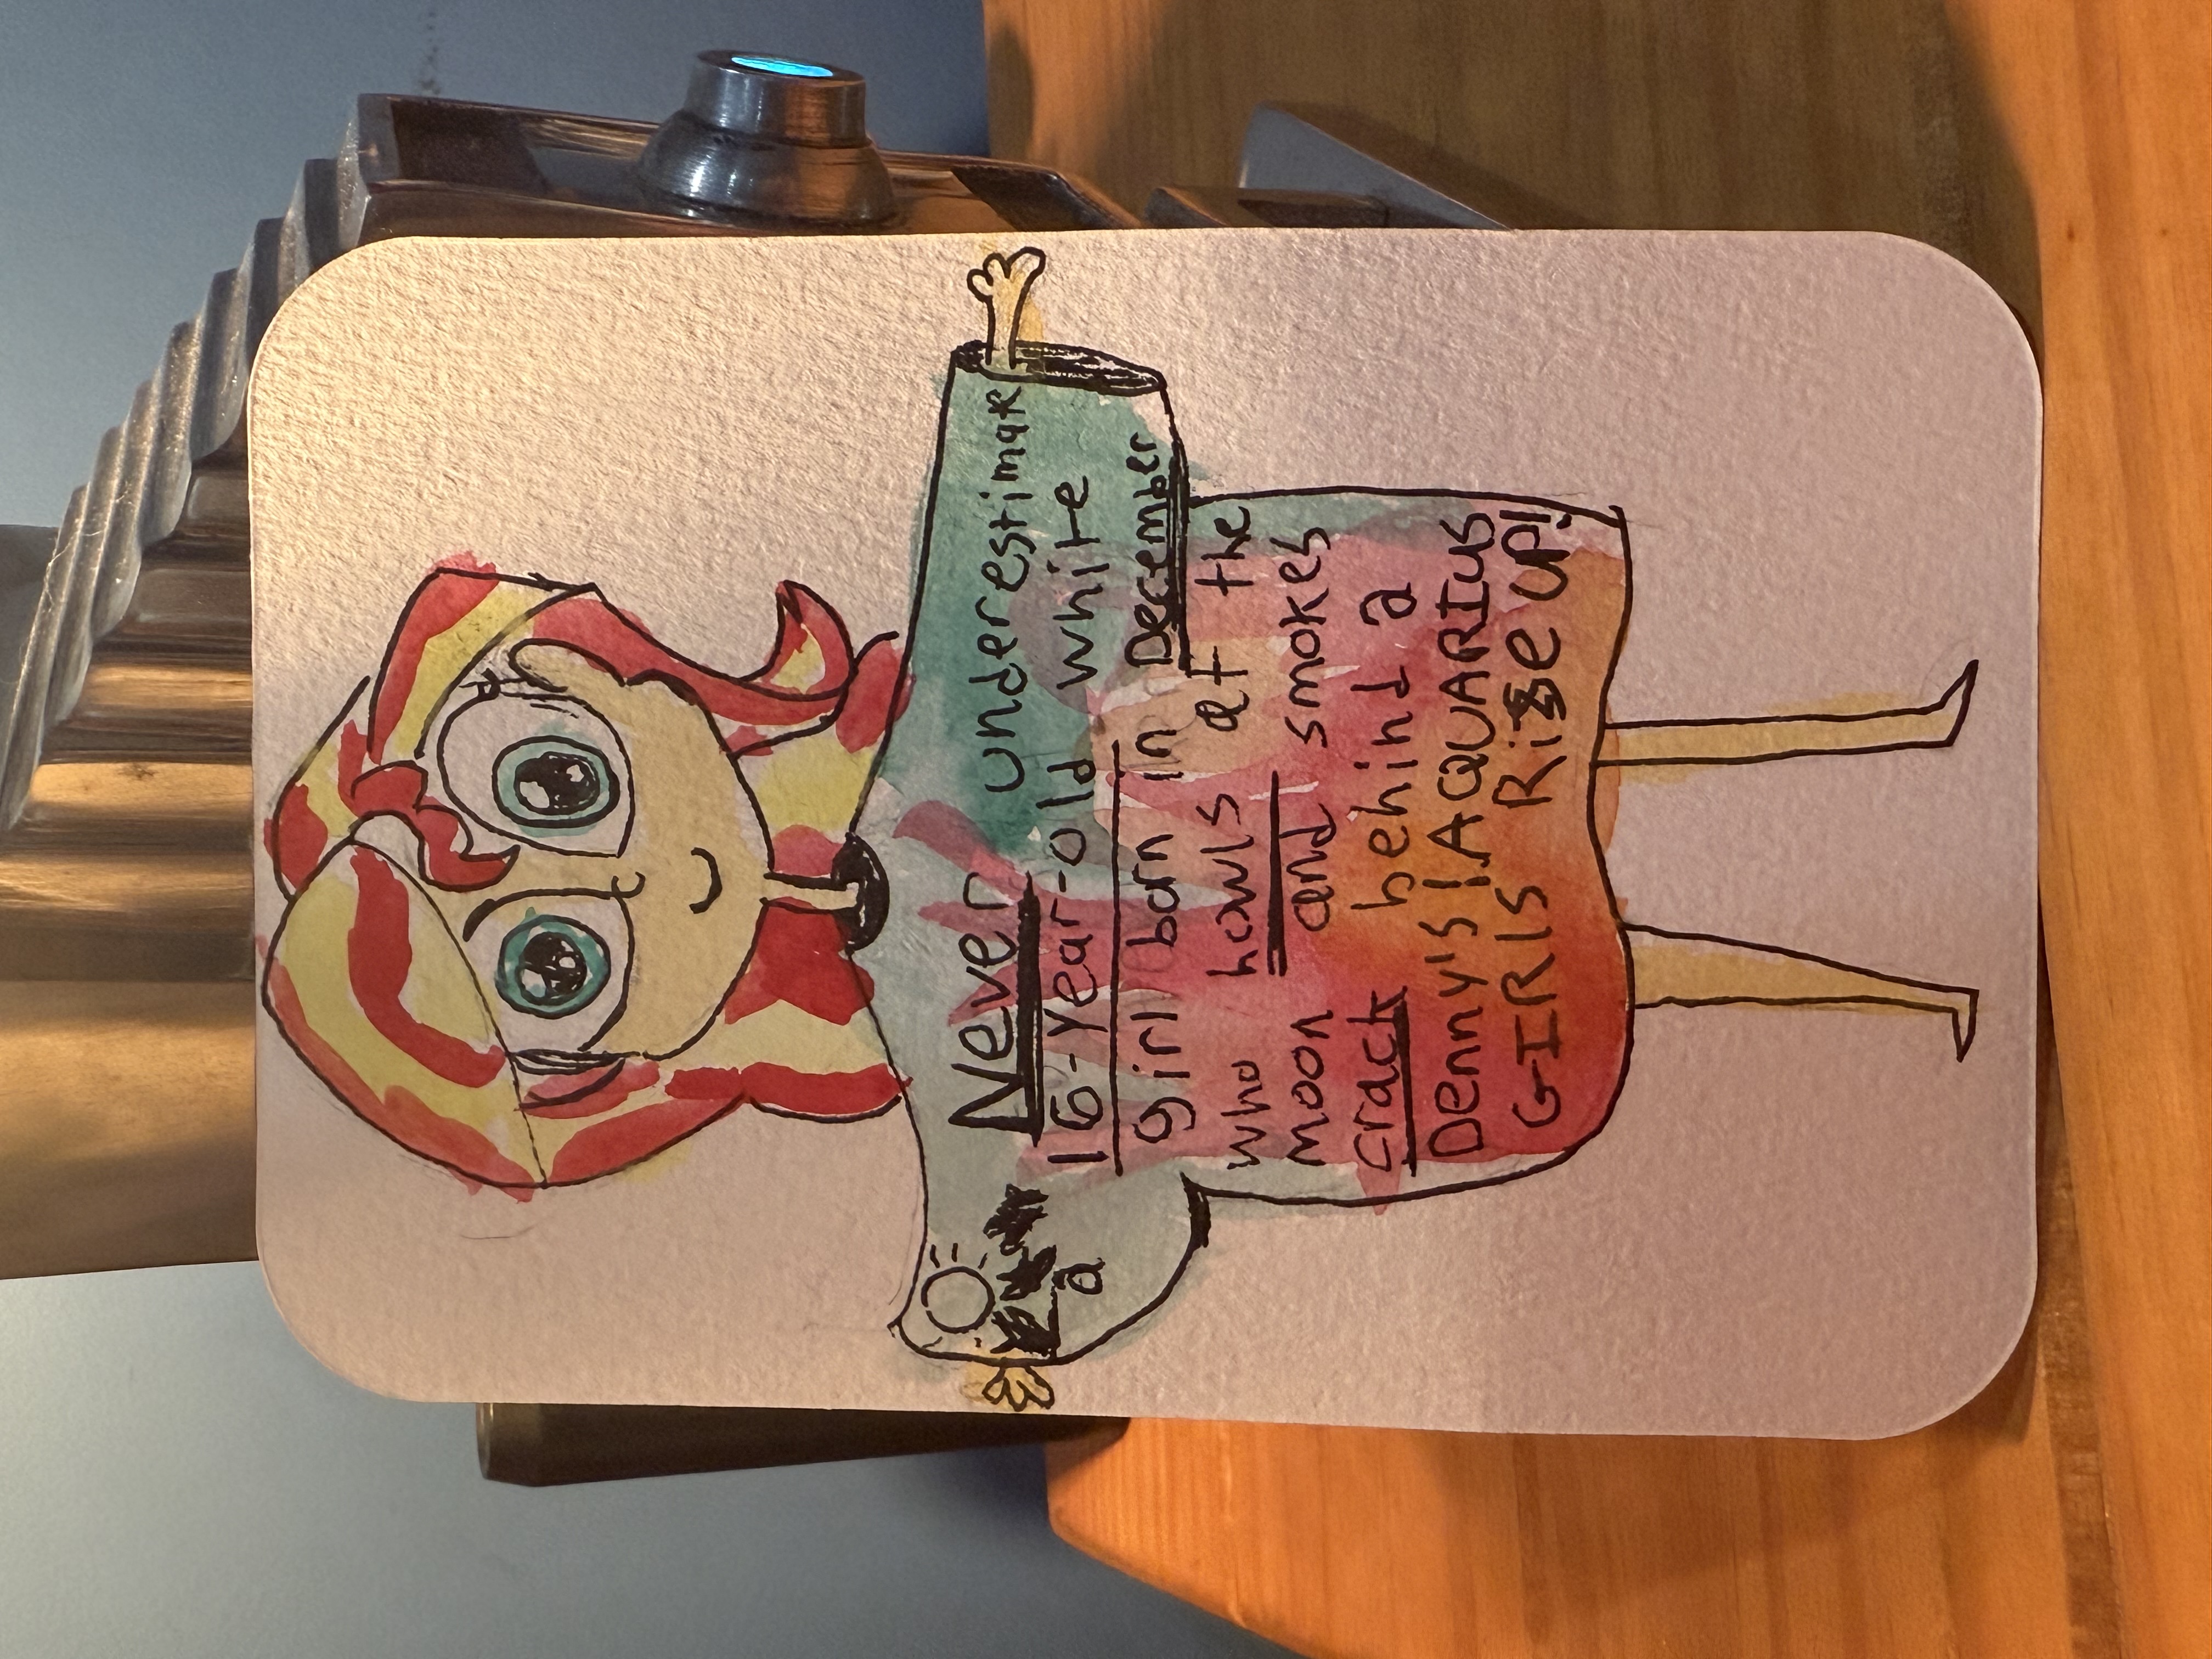 Never underestimate
a 16-year-old white
girl born in December
who howls at the
moon and smokes
crack behind a
Denny's! AQUARIUS
GIRls Rise UP!